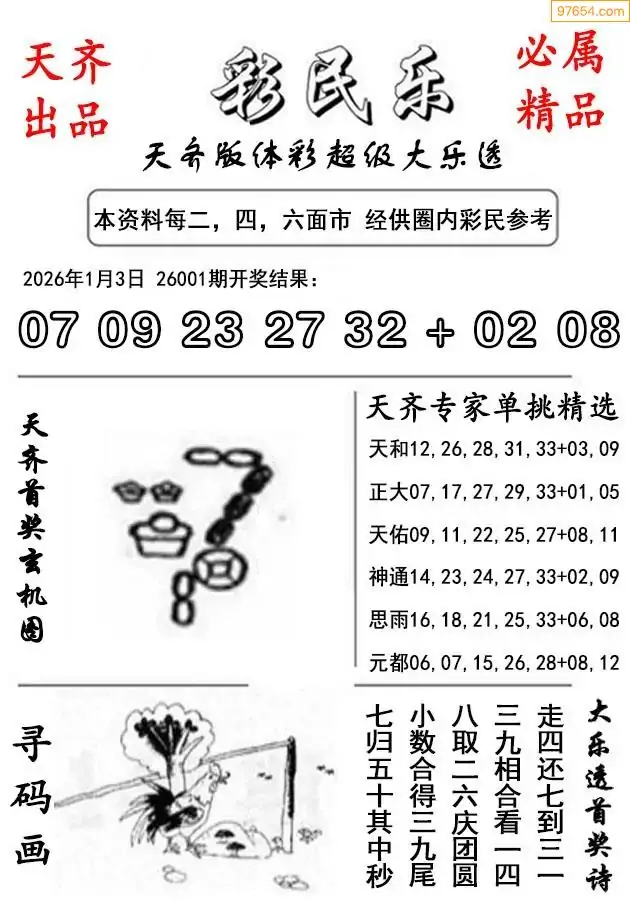 97654.com
天齐
出品
彩民乐
必属
精品
天齐版体彩超级大乐透
本资料每二，四，六面市 经供圈内彩民参考
2026年1月3日 26001期开奖结果：
07 09 23 27 32 + 02 08
天齐首奖玄机图
天齐专家单挑精选
天和12,26,28,31,33+03,09
正大07,17,27,29,33+01,05
天佑09,11,22,25,27+08,11
神通14,23,24,27,33+02,09
思雨16,18,21,25,33+06,08
元都06,07,15,26,28+08,12
寻码画
大乐透首奖诗
走四还七到三一
三九相合看一四
八取二六庆团圆
小数合得三九尾
七归五十其中秒